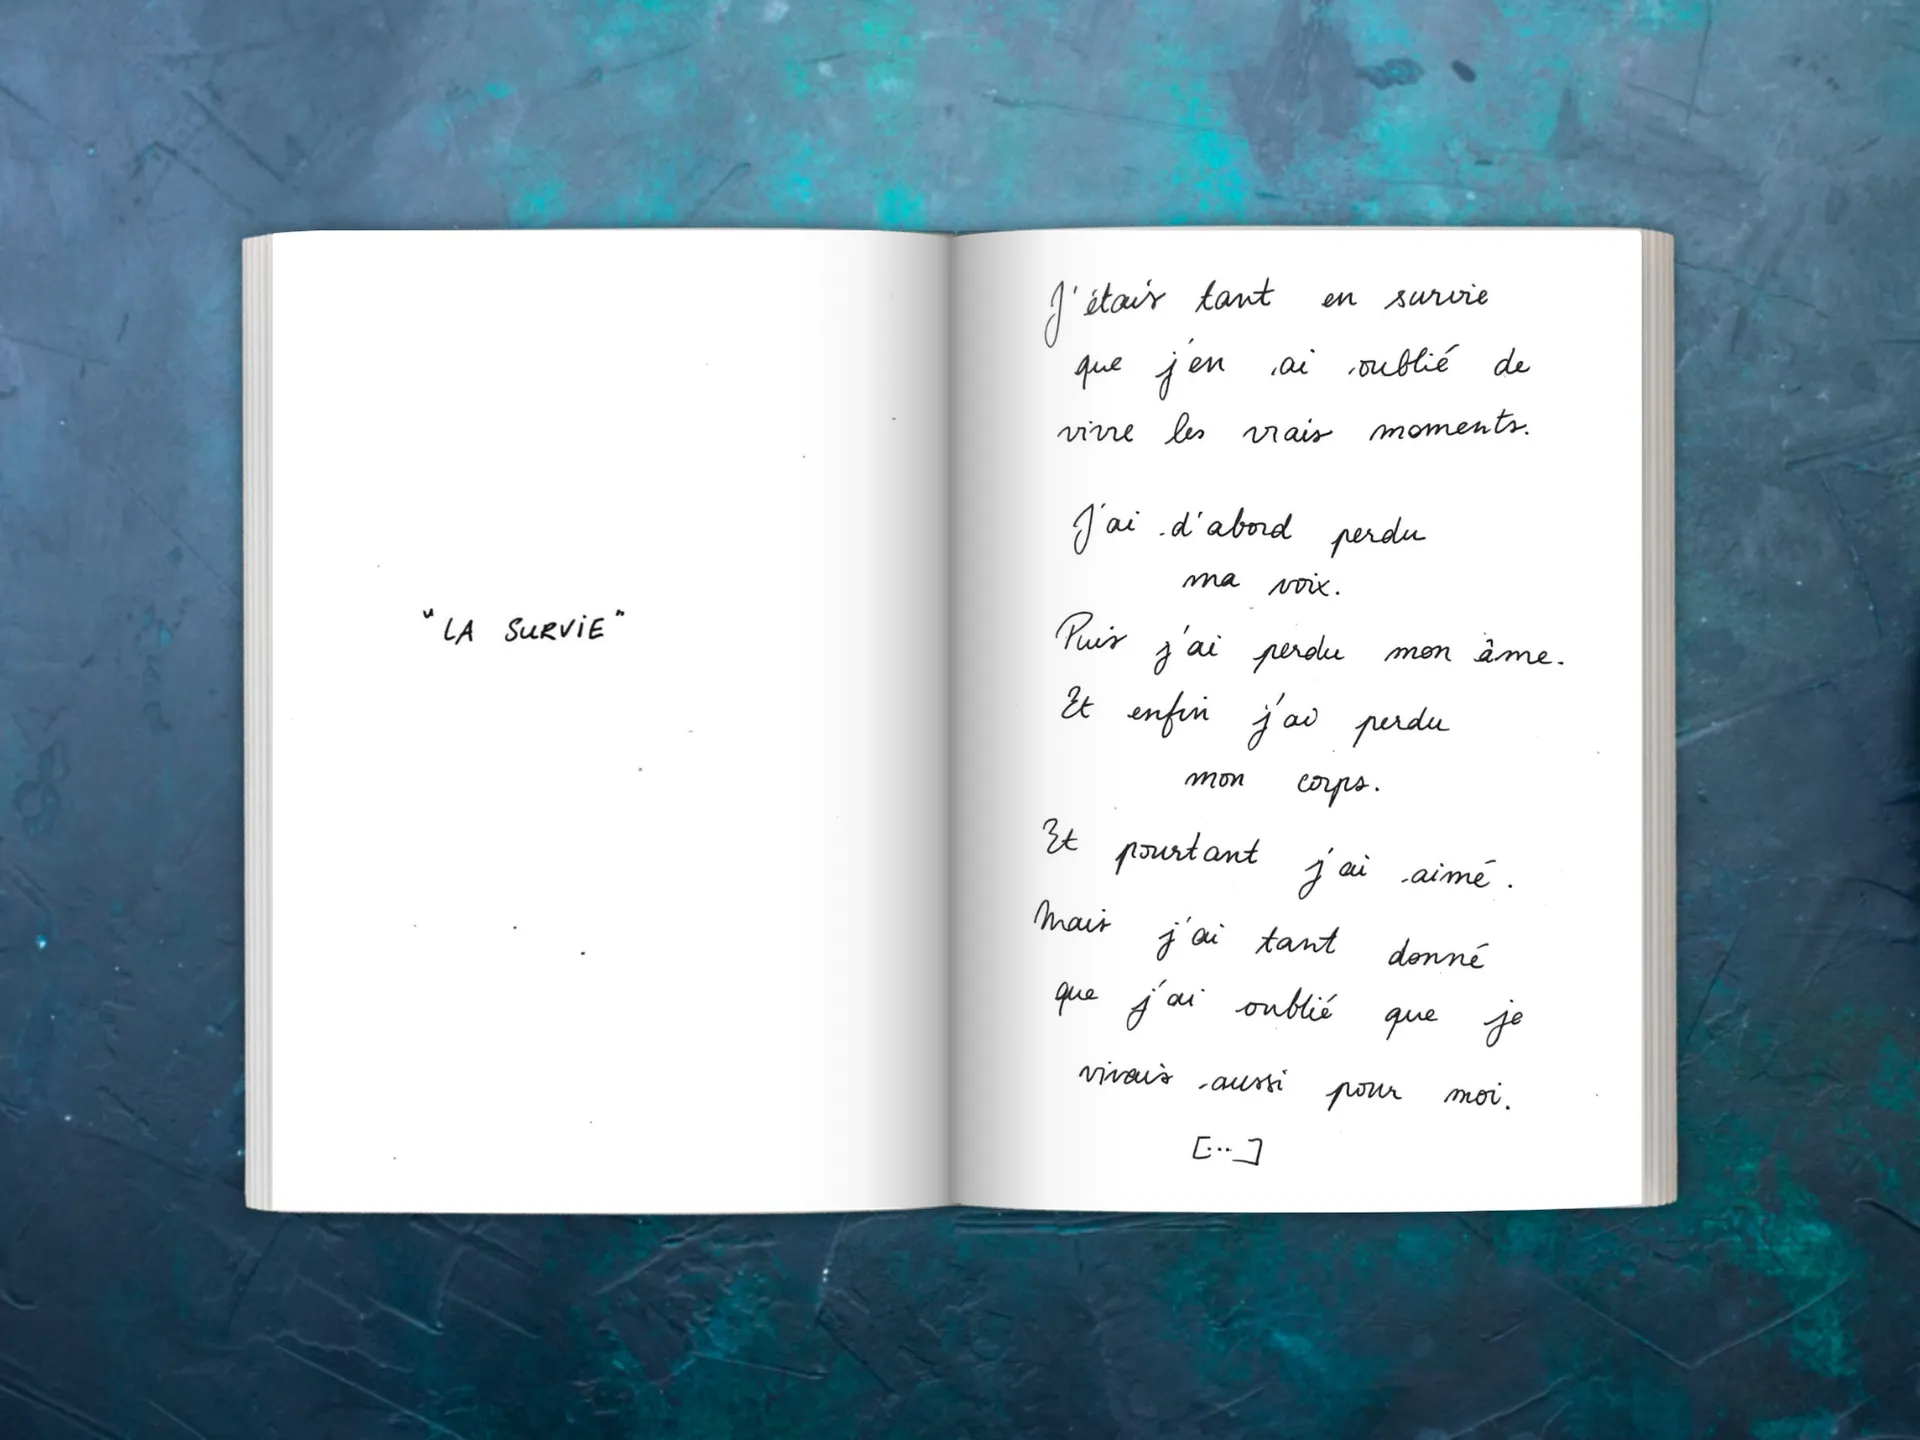 "LA SURVIE"
J'étais tant en survie
que j'en ai oublié de
vivre les vrais moments.
J'ai d'abord perdu
ma voix.
Puis j'ai perdu mon âme.
Et enfin j'ai perdu
mon corps.
Et pourtant j'ai aimé.
Mais j'ai tant donné
que j'ai oublié que je
vivais aussi pour moi.
[...]